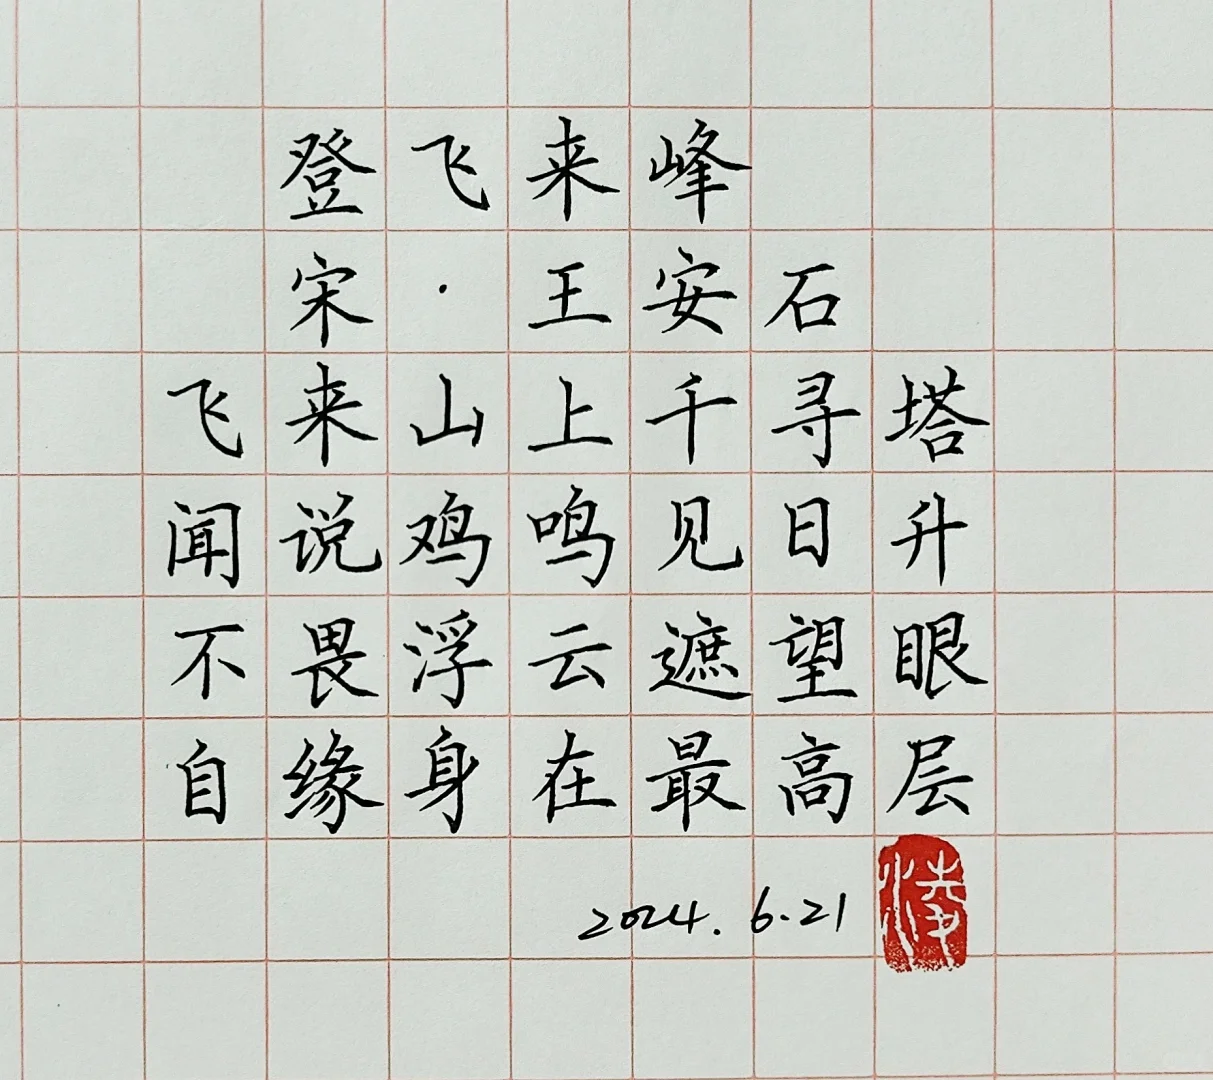 登飞来峰
宋·王安石
飞来山上千寻塔
闻说鸡鸣见日升
不畏浮云遮望眼
自缘身在最高层
2024.6.21